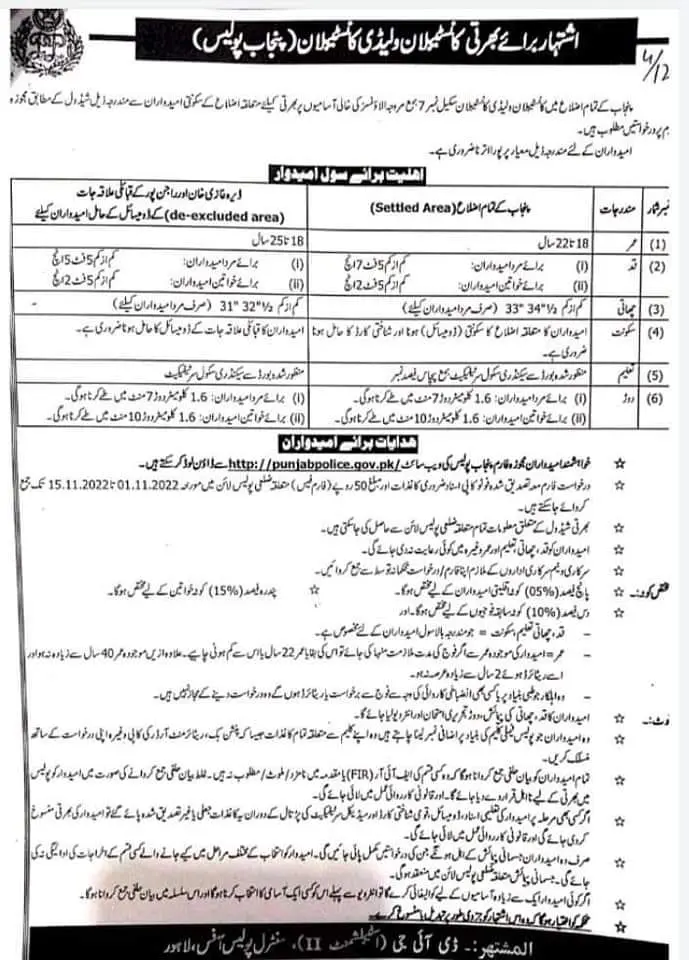 اشتہار برائے بھرتی کانسٹیبلان ولیڈی کانسٹیبلان (پنجاب پولیس)
4/12
پنجاب کے تمام اضلاع میں کانسٹیبلان ولیڈی کانسٹیبلان سکیل نمبر 7 بمع مروجہ الاؤنسز کی خالی آسامیوں پر بھرتی کیلئے متعلقہ اضلاع کے سکونتی امیدواران سے مندرجہ ذیل شیڈول کے مطابق مجوزہ
فارم پر درخواستیں مطلوب ہیں۔
امیدواران کے لئے مندرجہ ذیل معیار پر پورا اترنا ضروری ہے۔
اہلیت برائے سول امیدوار
نمبر شمار مندرجات پنجاب کے تمام اضلاع (Settled Area) ڈیرہ غازی خان اور راجن پور کے قبائلی علاقہ جات
(de-excluded area) کے ڈومیسائل کے حامل امیدواران کیلئے
(1) عمر 18 تا 22 سال 18 تا 25 سال
(2) قد (i) برائے مرد امیدواران: کم از کم 5 فٹ 7 انچ (i) برائے مرد امیدواران: کم از کم 5 فٹ 5 انچ
(ii) برائے خواتین امیدواران: کم از کم 5 فٹ 2 انچ (ii) برائے خواتین امیدواران: کم از کم 5 فٹ 2 انچ
(3) چھاتی کم از کم 33" 34½" (صرف مرد امیدواران کیلئے) کم از کم 31" 32½" (صرف مرد امیدواران کیلئے)
(4) سکونت امیدواران کا متعلقہ اضلاع کا سکونتی (ڈومیسائل) ہونا اور شناختی کارڈ کا حامل ہونا امیدواران کا قبائلی علاقہ جات کے ڈومیسائل کا حامل ہونا ضروری ہے۔
ضروری ہے۔
(5) تعلیم منظور شدہ بورڈ سے سیکنڈری سکول سرٹیفکیٹ بمع پچاس فیصد نمبر منظور شدہ بورڈ سے سیکنڈری سکول سرٹیفکیٹ
(6) دوڑ (i) برائے مرد امیدواران: 1.6 کلومیٹر دوڑ 7 منٹ میں طے کرنا ہوگی۔ (i) برائے مرد امیدواران: 1.6 کلومیٹر دوڑ 7 منٹ میں طے کرنا ہوگی۔
(ii) برائے خواتین امیدواران: 1.6 کلومیٹر دوڑ 10 منٹ میں طے کرنا ہوگی۔ (ii) برائے خواتین امیدواران: 1.6 کلومیٹر دوڑ 10 منٹ میں طے کرنا ہوگی۔
ھدایات برائے امیدواران
☆ خواہشمند امیدواران مجوزہ فارم پنجاب پولیس کی ویب سائٹ http://punjabpolice.gov.pk/ سے ڈاؤن لوڈ کر سکتے ہیں۔
☆ درخواست فارم معہ تصدیق شدہ فوٹو کاپی اسناد ضروری کاغذات اور مبلغ 50 روپے (فارم فیس) متعلقہ ضلعی پولیس لائن میں مورخہ 01.11.2022 تا 15.11.2022 تک جمع
کروائے جاسکتے ہیں۔
☆ بھرتی شیڈول کے متعلق معلومات تمام متعلقہ ضلعی پولیس لائن سے حاصل کی جاسکتی ہیں۔
☆ امیدواران کو قد، چھاتی، تعلیم اور عمر وغیرہ میں کوئی رعایت نہ دی جائے گی۔
☆ سرکاری و نیم سرکاری اداروں کے ملازم اپنا فارم / درخواست محکمانہ توسط سے جمع کروائیں۔
مختص کوٹہ:۔ ☆ پانچ فیصد (05%) کوٹہ اقلیتی امیدواران کے لیے مختص ہوگا۔ ☆ پندرہ فیصد (15%) کوٹہ خواتین کے لیے مختص ہوگا۔
☆ دس فیصد (10%) کوٹہ سابقہ فوجیوں کے لیے مختص ہوگا۔ اور
- قد، چھاتی، تعلیم، سکونت = جو مندرجہ بالا سول امیدواران کے لئے مخصوص ہے۔
- عمر = امیدوار کی موجودہ عمر سے اگر فوج کی مدت ملازمت منہا کی جائے تو اس کی بقایا عمر 22 سال یا اس سے کم ہونی چاہیے۔ علاوہ ازیں موجودہ عمر 40 سال سے زیادہ نہ ہو اور
اسے ریٹائرڈ ہوئے 2 سال سے زیادہ عرصہ نہ ہو۔
- وہ اہلکار جو طبی بنیاد پر یا کسی بھی انضباطی کاروائی کی وجہ سے فوج سے برخواست یا ریٹائرڈ ہوں گے وہ درخواست دینے کے مجاز نہیں ہیں۔
نوٹ:۔ ☆ امیدواران کا قد، چھاتی کی پیمائش، دوڑ، تحریری امتحان اور انٹرویو لیا جائے گا۔
☆ وہ امیدواران جو پولیس فیملی کلیم کی بنیاد پر اضافی نمبر لینا چاہتے ہیں وہ اپنے کلیم سے متعلقہ تمام کاغذات جیسا کہ پنشن بک، ریٹائرمنٹ آرڈر کی کاپی وغیرہ اپنی درخواست کے ساتھ
منسلک کریں۔
☆ تمام امیدواران کو بیان حلفی جمع کروانا ہوگا کہ وہ کسی قسم کی ایف آئی آر (FIR) یا مقدمہ میں نامزد / ملوث / مطلوب نہ ہیں۔ غلط بیان حلفی جمع کروانے کی صورت میں امیدوار کو پولیس
میں بھرتی کے لیے نااہل قرار دے دیا جائے گا۔ اور قانونی کاروائی عمل میں لائی جائے گی۔
☆ اگر کسی بھی مرحلہ پر امیدوار کی تعلیمی اسناد، ڈومیسائل، قومی شناختی کارڈ اور میڈیکل سرٹیفکیٹ کی پڑتال کے دوران یہ کاغذات جعلی یا غیر تصدیق شدہ پائے گئے تو امیدوار کی بھرتی منسوخ
کر دی جائے گی اور قانونی کاروائی عمل میں لائی جائے گی۔
☆ صرف وہ امیدواران جسمانی پیمائش کے اہل ہونگے جن کی درخواستیں مکمل پائی جائیں گی۔ امیدوار کو انتخاب کے مختلف مراحل میں کیے جانے والے کسی قسم کے اخراجات کی ادائیگی نہ کی
جائے گی۔ جسمانی پیمائش متعلقہ ضلعی پولیس لائن میں منعقد ہوگی۔
☆ اگر کوئی امیدوار ایک سے زیادہ آسامیوں کے لیے کوالیفائی کرے گا تو انٹرویو سے پہلے اس کو کسی ایک آسامی کا انتخاب کرنا ہوگا اور اس سلسلہ میں بیان حلفی جمع کروانا ہوگا۔
☆ محکمہ کو اختیار ہوگا کہ وہ اس اشتہار کو جزوی طور پر تبدیل یا منسوخ کرے۔
المشتہر:۔ ڈی آئی جی (اسٹیبلشمنٹ II)، سنٹرل پولیس آفس، لاہور